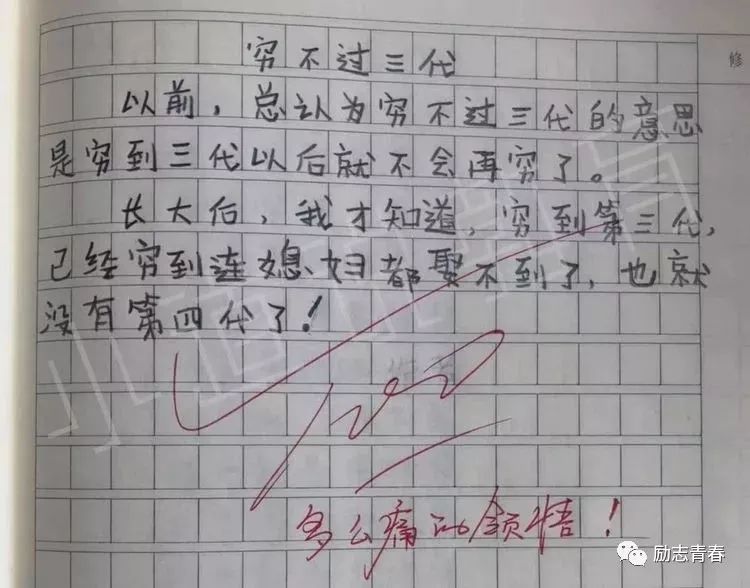 穷不过三代
以前，总认为穷不过三代的意思
是穷到三代以后就不会再穷了。
长大后，我才知道，穷到第三代，
已经穷到连媳妇都娶不到了，也就
没有第四代了！
100
多么痛的领悟！
修
励志青春